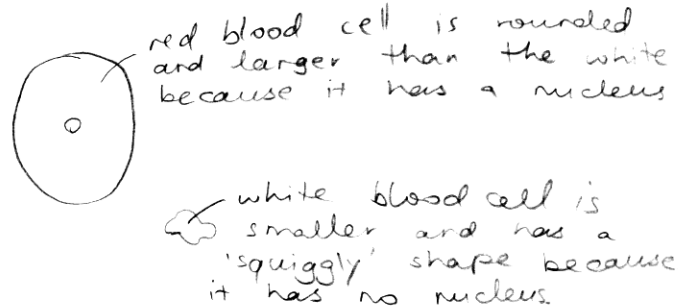 red blood cell is rounded
and larger than the white
because it has a nucleus
white blood cell is
smaller and has a
'squiggly' shape because
it has no nucleus.